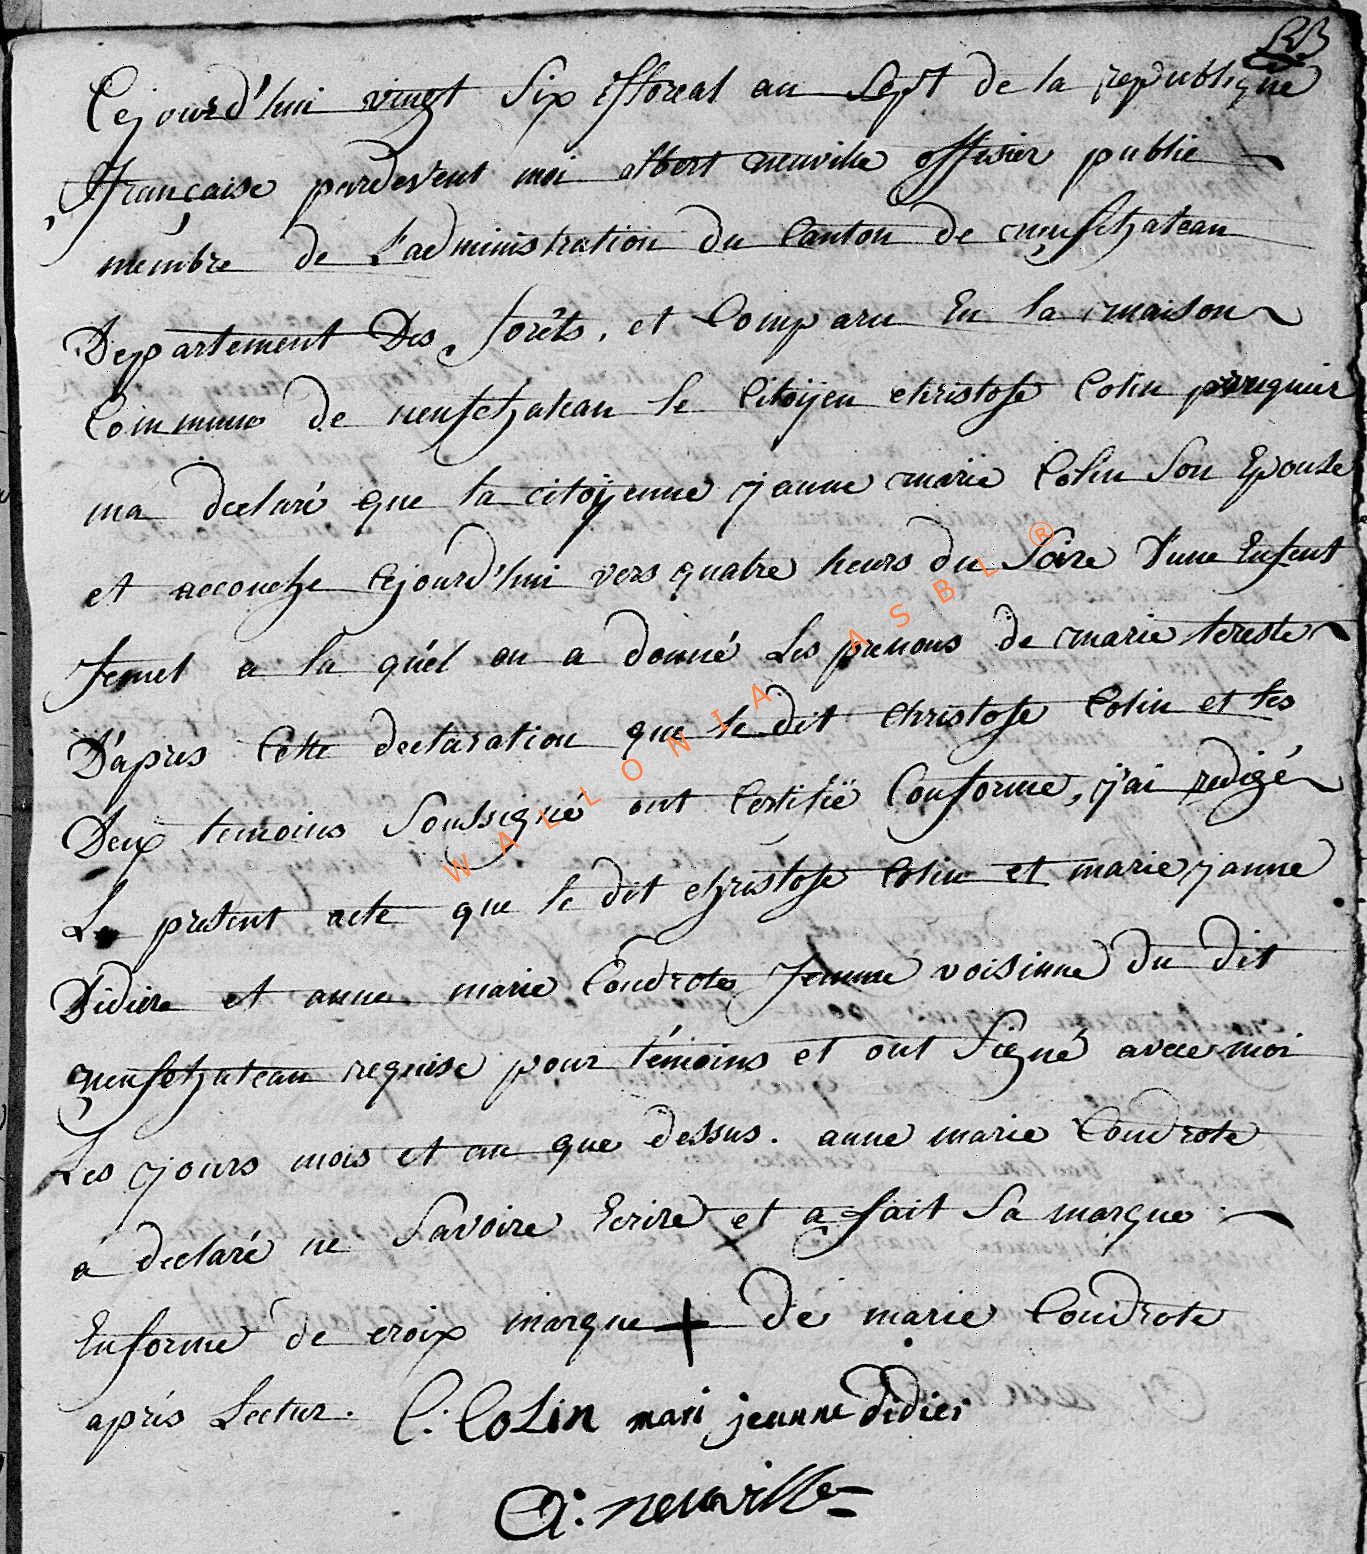 Cejourd'hui vingt Six fforeal an Sept de la republique
Française pardevent moi albert neuville offisier publie
membre de L'administration du Canton de neufchateau
Departement Des forêts, et Comparu En la maison
Commune de neufchateau le Citoÿen christofe Colin peruquier
ma declaré que la citoÿenne jeanne marie Colin Son Epouse
et accouche Cejourd'hui vers quatre heurs du Soire d'une Enfent
femel a la quél on a donné Les prenons de marie tereste
D'apres Cette declaration que le dit christofe Colin et les
Deux temoins Soussigné ont Certifié Conforme, j'ai redigé
Le present acte que le dit christofe Colin et marie janne
Didière et anne marie Coudrote femme voisinne du dit
neufchateau requise pour témoins et ont Signé avece moi
Les jours mois et an que dessus. anne marie Coudrote
a declaré ne Savoire Ecrire et a fait Sa marque
Enforme de croix marque + de marie Coudrote
après Lectur. C. Colin mari jeanne didier
A: neuville
WALLONIA ASBL ®